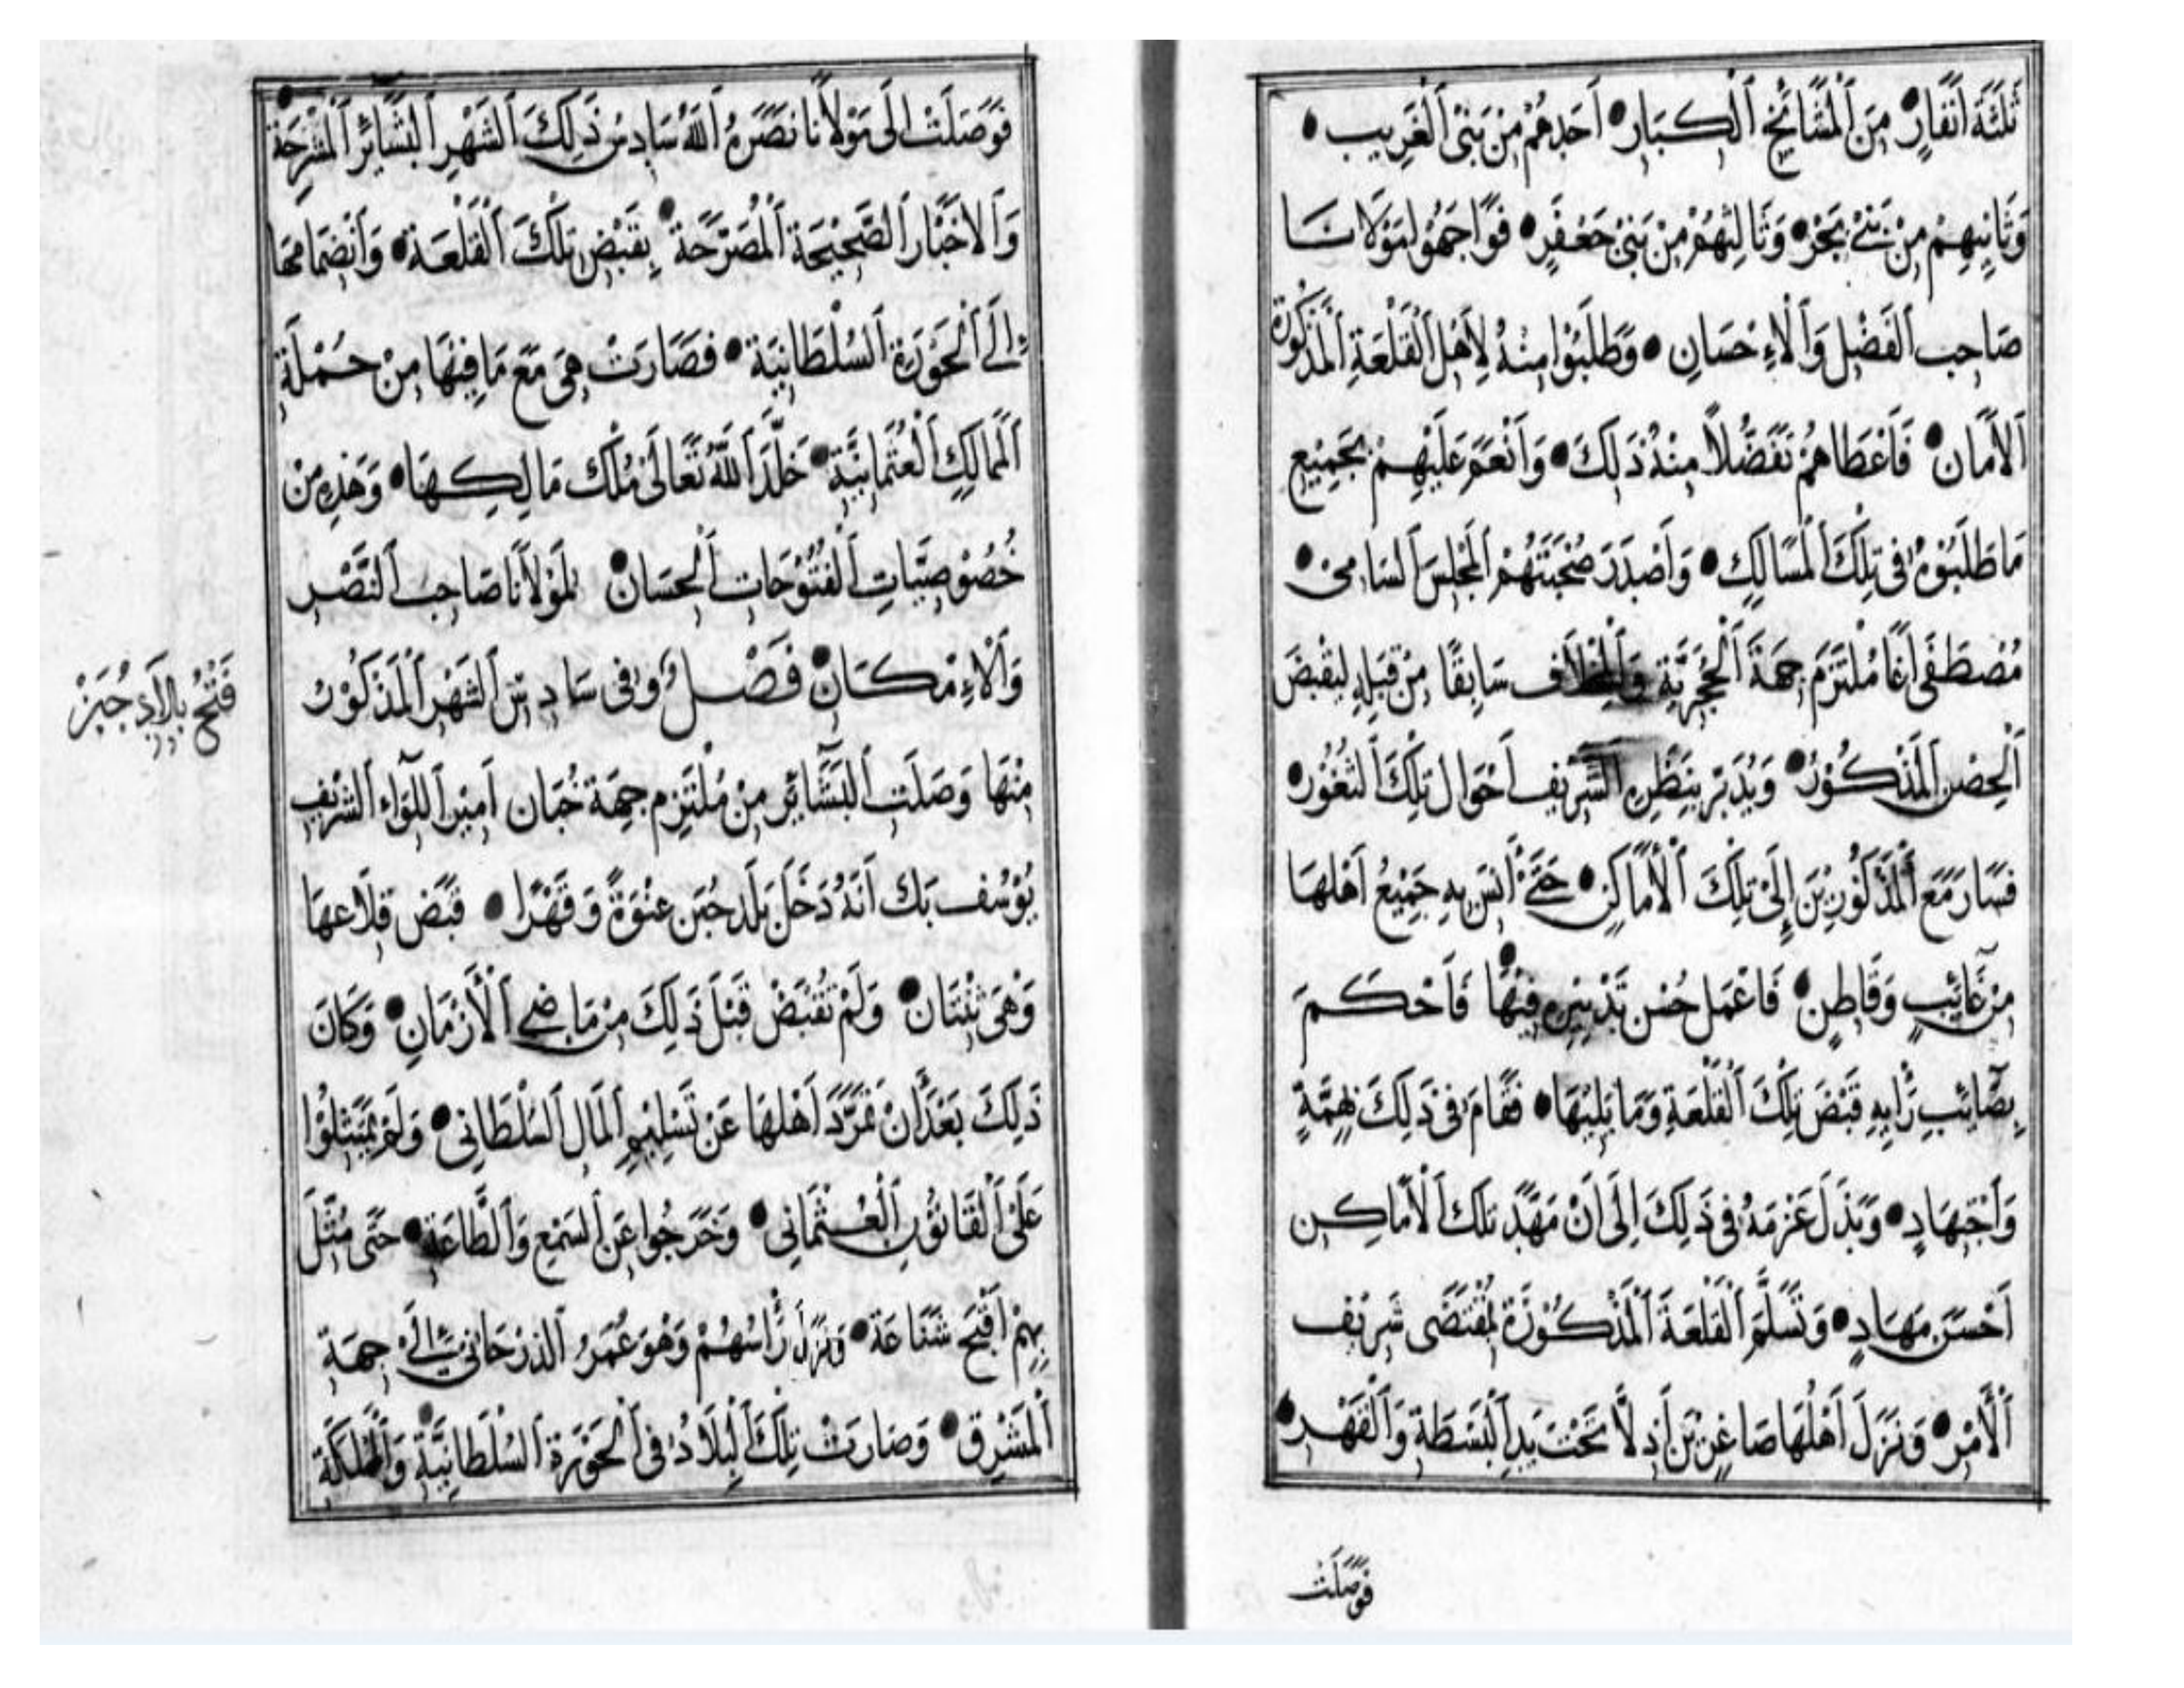 ثَلٰثَةَ اَنْفَارٍ مِنَ اَلْمَشَائِخِ اَلْكِبَارِ اَحَدِهُمْ مِنْ بَنِي اَلْغَرِيب
وَثَانِيهِمْ مِنْ بَنِيْ بَحْر وَثَالِثِهُمْ مِنْ بَنِيْ جَعْفَرٍ فَوَاجَهُوْا مَوْلَانَا
صَاحِب اَلْفَضْلِ وَاَلْاِحْسَانِ وَطَلَبُوْا مِنْهُ لِاَهْلِ اَلْقَلْعَةِ اَلْمَذْكُورَة
اَلْاَمَان فَاَعْطَاهُمْ تَفَضُّلاً مِنْهُ ذَلِكَ وَاَنْعَمَ عَلَيْهِمْ بِجَمِيْعِ
مَا طَلَبُوْهُ فِى تِلْكَ اَلْمَسَالِكِ وَاَصْدَرَ صُحْبَتَهُمْ اَلْمَجْلِسَ اَلسَامِىْ
مُصْطَفٰى اَغَا مُلْتَزَمِ جِهَةَ اَلْحُجَرِيَّةِ سَابِقًا مِنْ قِبَلِهِ لِيَقْبَضَ
اَلْحِصْنَ اَلْمَذْكُوْرُ وَيُدَبِّرْ بِنَظَرِهِ اَلشَّرِيْفِ اَحْوَال تِلْكَ اَلثُغُوْر
فَسَارَ مَعَ اَلْمَذْكُوْرِيْنَ اِلَىْ تِلْكَ اَلْاَمَاكِنِ حَتَّىْ اَنِسَ بِهِ جَمِيْعُ اَهْلِهَا
مِنْ غَائِبٍ وَقَاطِنٍ فَاَعْمَل حُسْن تَدْبِيْرِهِ فِيْهَا فَاَحْكَمَ
بِصَائِبِ رَّايِهِ قَبْضَ تِلْكَ اَلْقَلْعَةِ وَمَا يَلِيْهَا فَقَامَ فِى ذَلِكَ بِهِمَّةٍ
وَاَجْتِهَادٍ وَبَذَلَ عَزْمَهُ فِى ذَلِكَ اِلَى اَنْ مَهَّدَ تِلْكَ اَلْاَمَاكِن
اَحْسَنَ مِهَادٍ وَتَسَلَّمَ اَلْقَلْعَةَ اَلْمَذْكُوْرَةَ بِمُقْتَضٰى شَرِيْف
اَلْاَمْرِ وَنَزَلَ اَهْلُهَا صَاغِرِيْنَ اَذِلَّا تَحْتَ يَدِ اَلْبَسْطَةِ وَاَلْقَهْرِ
فَوَصَلَتْ
فَوَصَلَتْ اِلَى مَوْلَانَا نَصَرَهُ اَللهُ سَادِسْ ذَلِكَ اَلشَهْرِ اَلْبَشَائِرُ اَلْمُشْرِحَة
وَاَلْاَخْبَارُ اَلصَّحِيْحَةِ اَلْمُصَرِّحَةَ بِقَبْضِ تِلْكَ اَلْقَلْعَةِ وَاَنْضِمَامِهَا
اِلَى اَلْحَوْزَةِ اَلسُلْطَانِيَة فَصَارَتْ هِيَ مَعَ مَا فِيْهَا مِنْ جُمْلَةِ
اَلْمَمَالِكِ اَلْعُثْمَانِيَّةِ خَلَّدَ اَللهُ تَعَالٰى مُلْكَ مَالِكِهَا وَهَذِهِ مِنْ
خُصُوْصِيَّاتِ اَلْفُتُوْحَاتِ اَلْحِسَانْ لِمَوْلَانَا صَاحِبِ اَلنَّصْرِ
وَاَلْاِمْكَانْ فَصْلٌ وَفِى سَادِسْ اَلشَهْرِ اَلْمَذْكُوْرْ
فَتْحُ بِلَادِ جُبَنْ
مِنْهَا وَصَلَتِ اَلْبَشَائِر مِنْ مُلْتَزِم جِهَة خُبَان اَمِيْر اَللِّوَاء اَلشَرِيْفِ
يُوْسُف بَك اَنَهُ دَخَلَ بَلَد جُبَن عِنْوَةً وَقَهْرًا قَبَضَ قِلَاعهَا
وَهْيَ ثِنْتَان وَلَمْ تُقْبَضْ قَبْلَ ذَلِكَ مِنْ مَاضِى اَلْاَزْمَانِ وَكَانَ
ذَلِكَ بَعْدَ اَنْ تَمَرَّدَ اَهْلهَا عَنْ تَسْلِيْمِ اَلْمَالِ اَلسُلْطَانِى وَلَمْ يَمْتَثِلُوْا
عَلَىْ اَلْقَانُوْنِ اَلْعُثْمَانِى وَخَرَجُوا عَنِ اَلسَمْعِ وَاَلطَّاعَةِ حَتَّى مُثِّلَ
بِهِمْ اَقْبَحَ شَنَاعَة وَنَزَلَ رَّاسُهُمْ وَهْوَ عُمَرُ اَلذرْحَانِى اِلَىْ جِهَةِ
اَلْمَشْرِقِ وَصَارَتْ تِلْكَ اَلْبِلَادُ فِى اَلْحَوْزَةِ اَلسُلْطَانِيَّةِ وَاَلْمَمْلَكَةِ